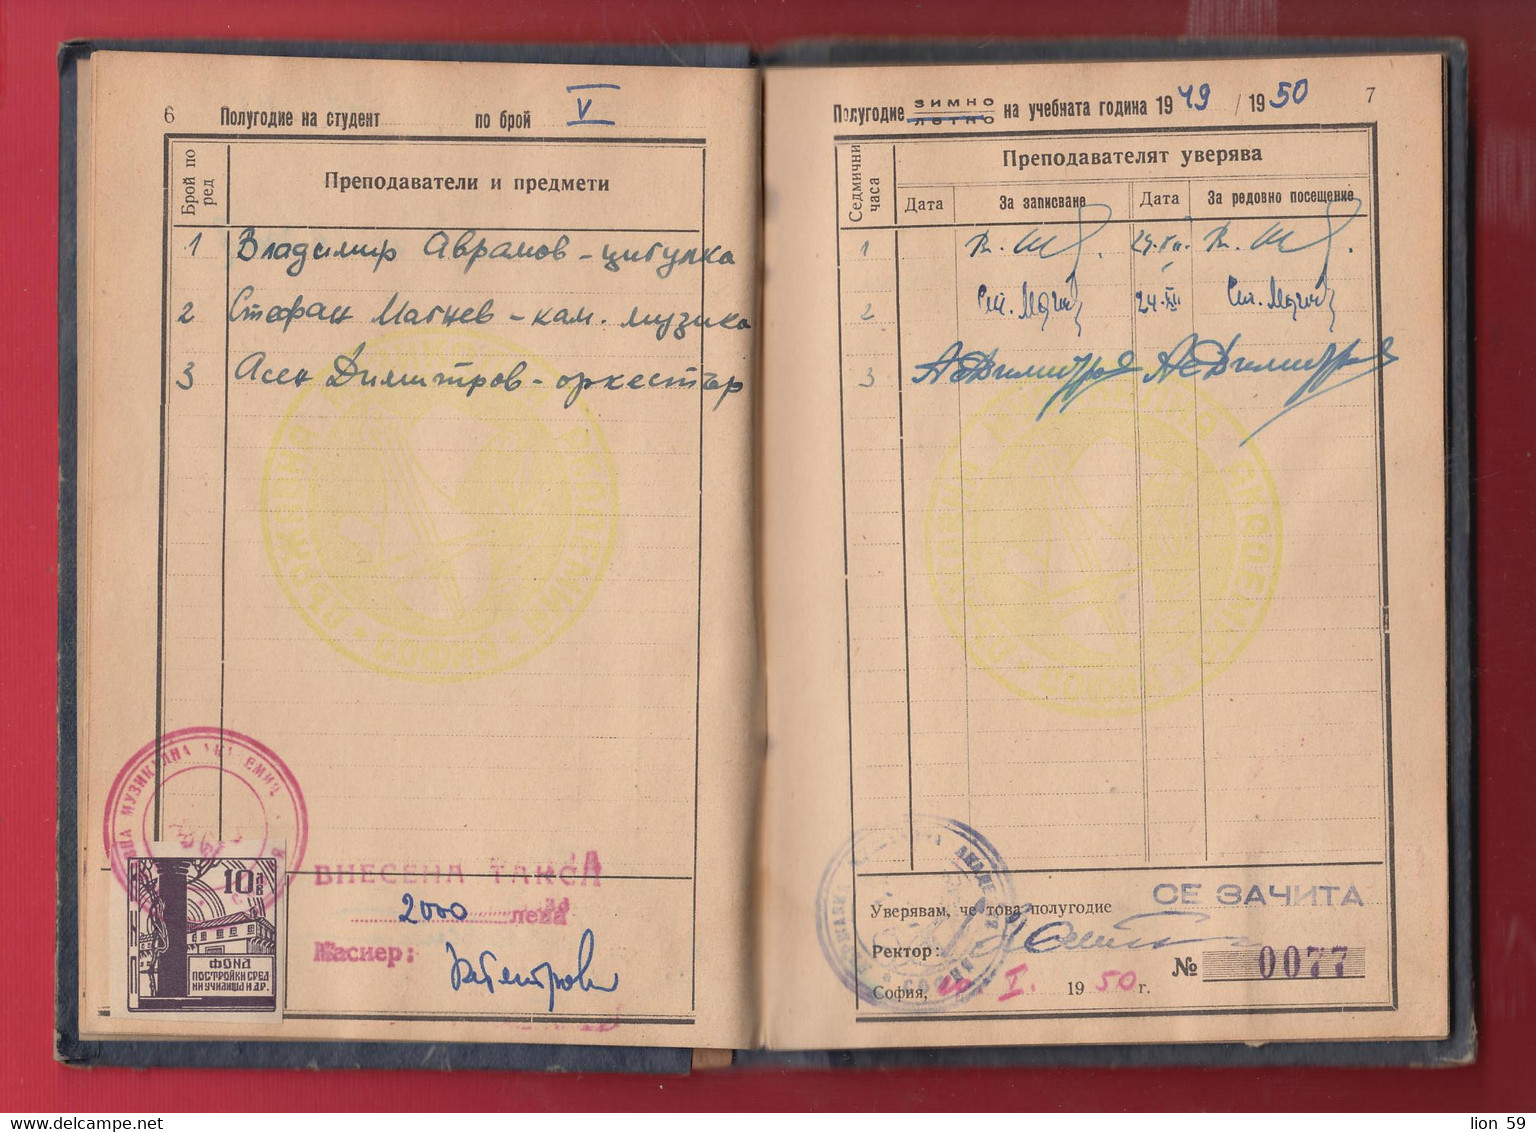 6 Полугодие на студент по брой V
Брой по ред
Преподаватели и предмети
1 Владимир Аврамов - цигулка
2 Стефан Магнев - кам. музика
3 Асен Димитров - оркестър
ДЪРЖАВНА МУЗИКАЛНА АКАДЕМИЯ
СОФИЯ
10 ЛВ
ФОНД
ПОСТРОЙКИ СРЕД
НИ УЧИЛИЩА И ДР.
ВНЕСЕНА ТАКСА
2000 лева
Касиер:
Полугодие зимно летно на учебната година 1949 / 1950 7
Седмични часа
Преподавателят уверява
Дата За записване Дата За редовно посещение
1
2 Ст. Магнев 24.XII Ст. Магнев
3 А Димитров А Димитров
ДЪРЖАВНА МУЗИКАЛНА АКАДЕМИЯ
СОФИЯ
СЕ ЗАЧИТА
Уверявам, че това полугодие
Ректор:
№ 0077
София, I. 1950 г.
lion 59
www.delcampe.net